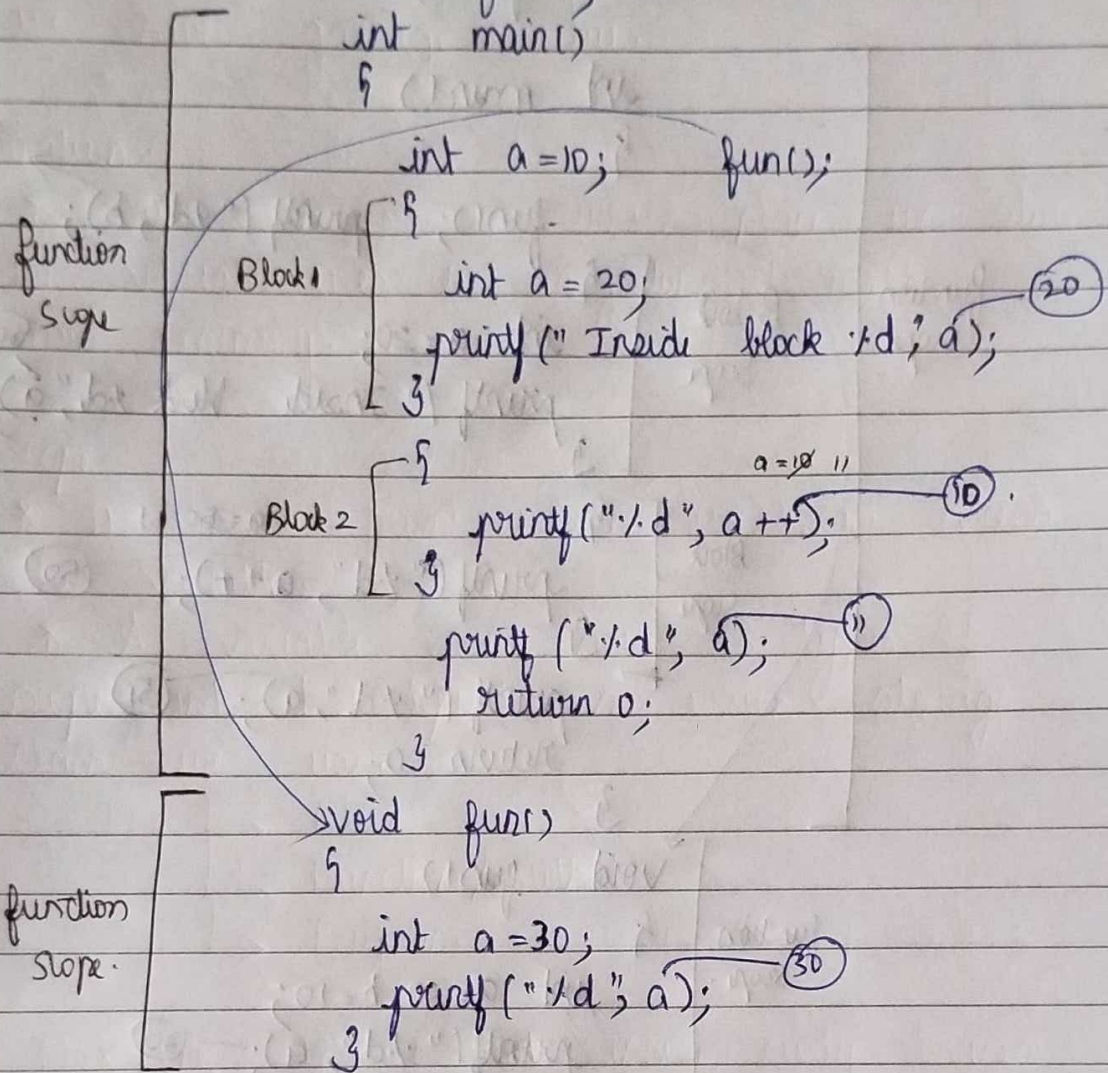 int main()
{
int a=10; fun();
function
scope
Block1
{
int a = 20;
20
printf (" Inside block %d", a);
}
{
a=10 11
Block 2
printf("%d", a++);
10
}
printf ("%d", a);
11
return 0;
}
void fun()
{
function
scope.
int a=30;
printf ("%d", a);
30
}